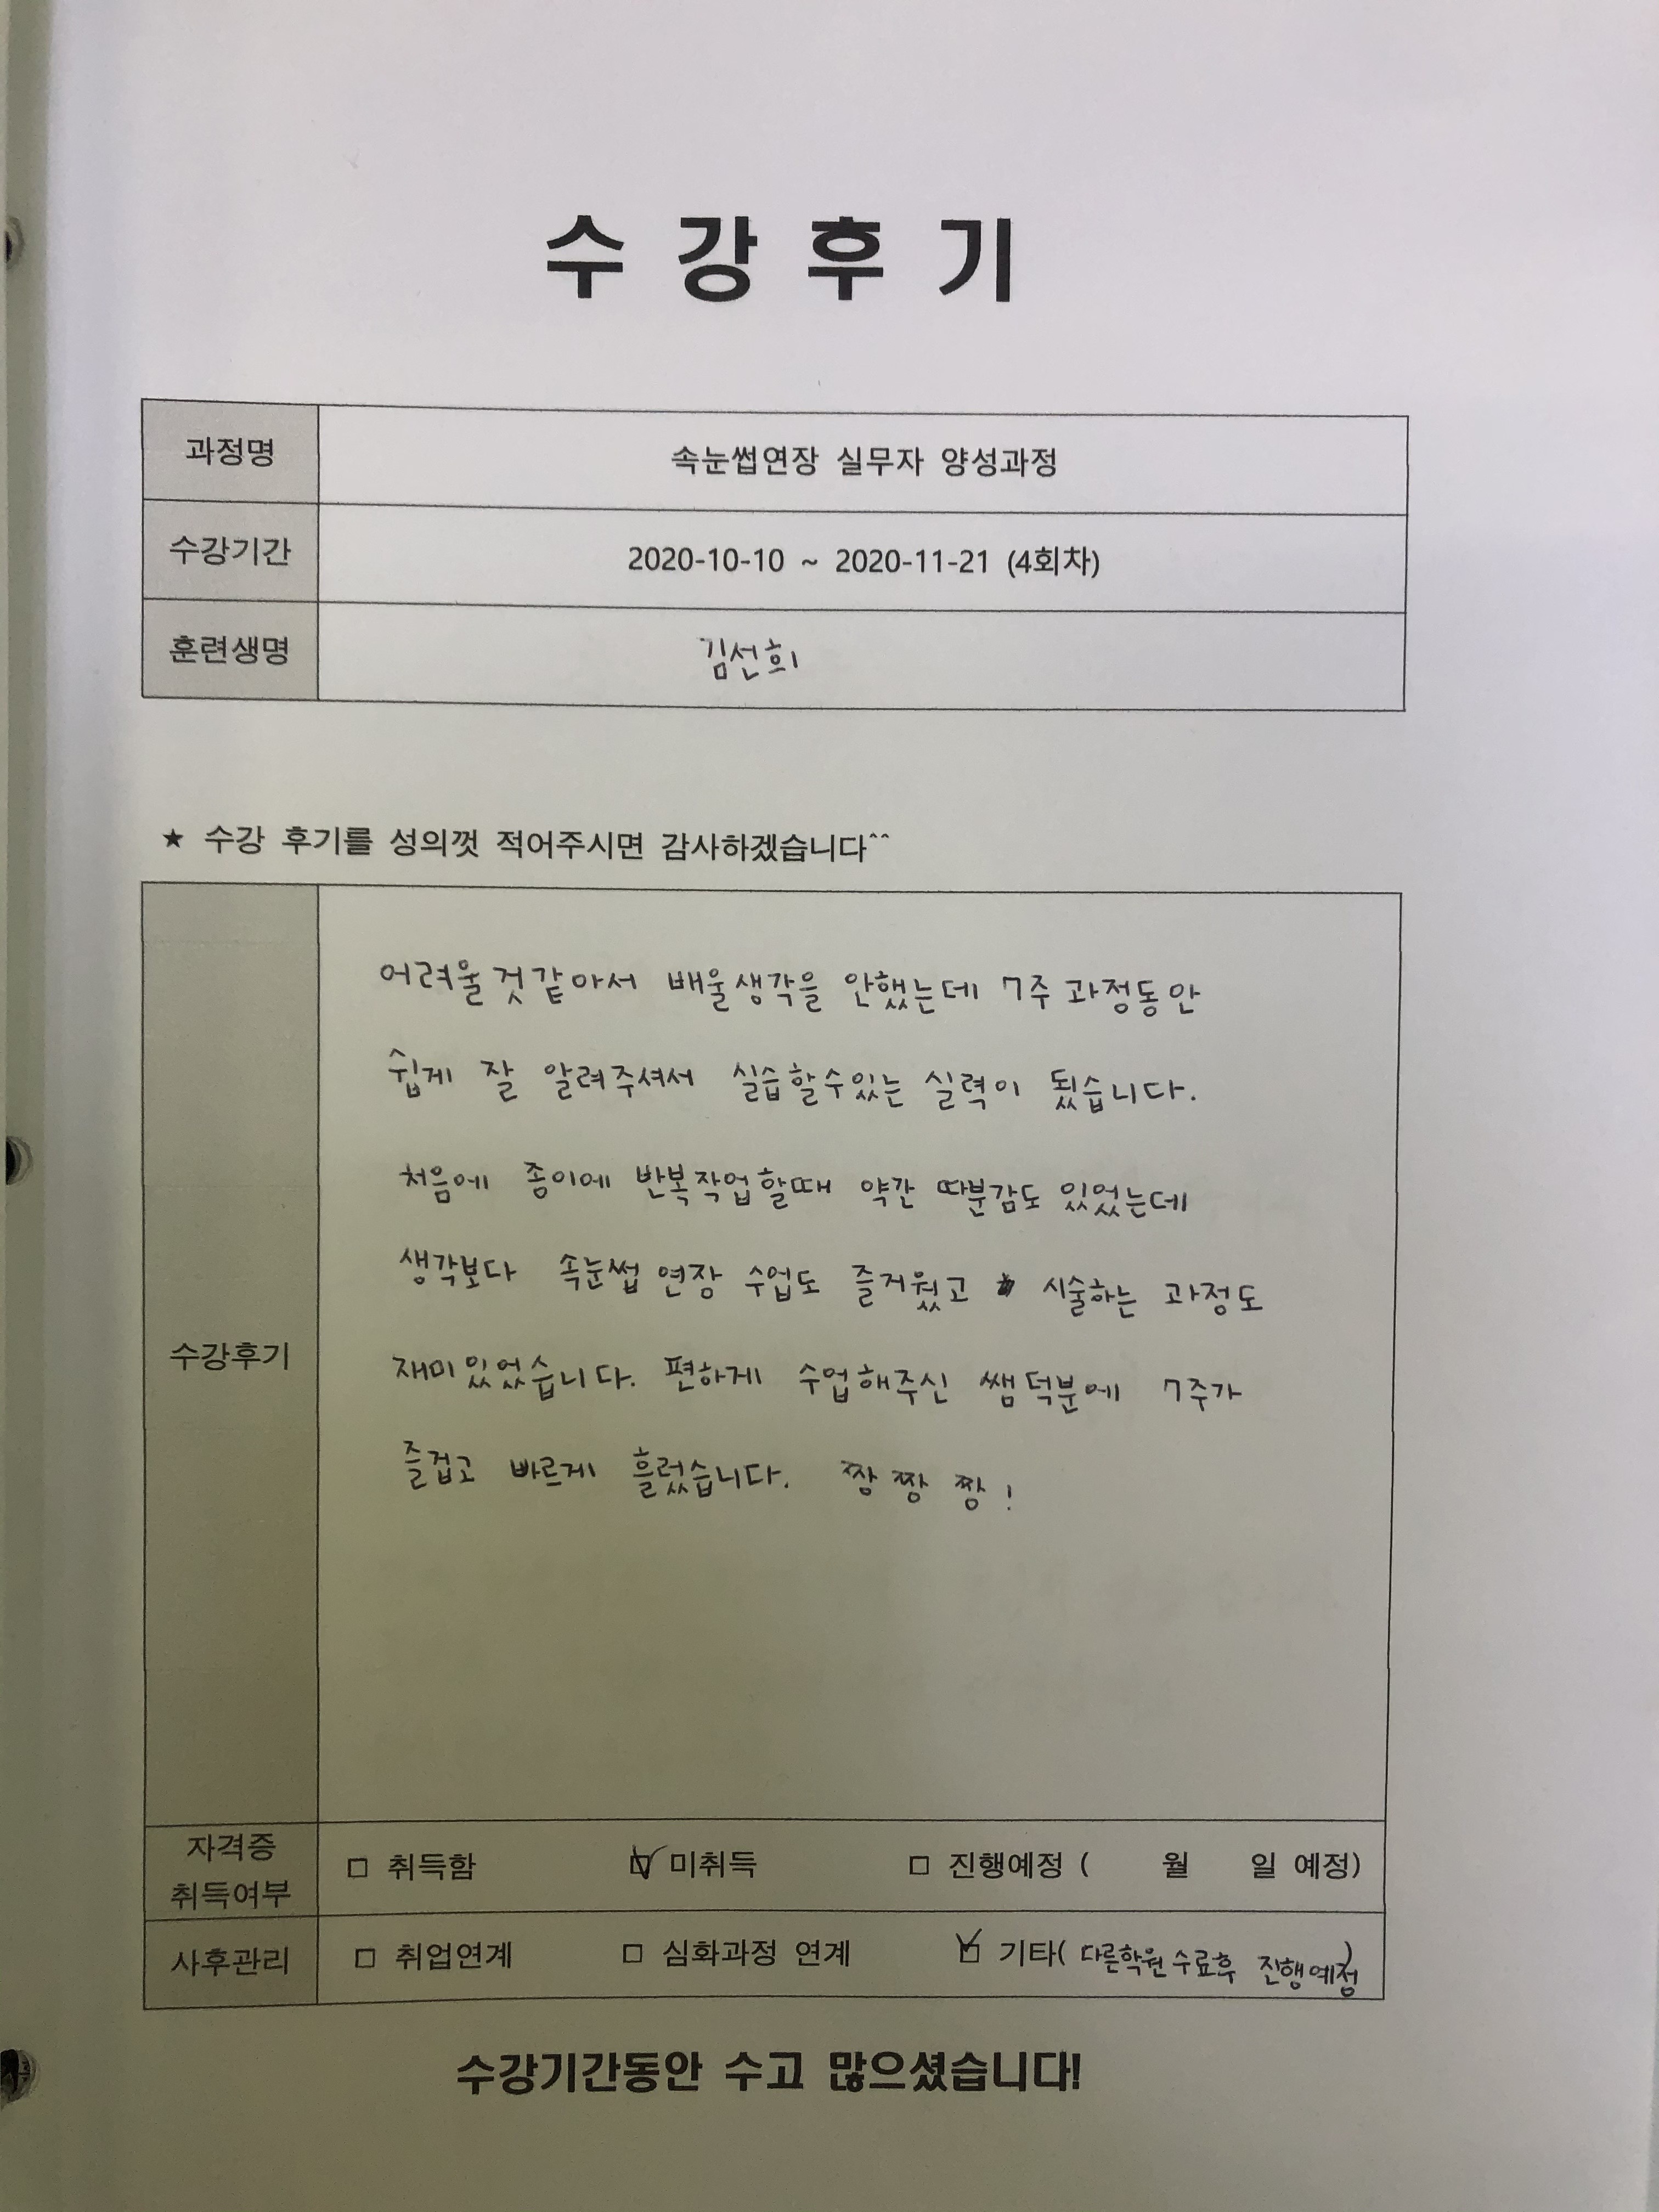 수강후기
과정명 속눈썹연장 실무자 양성과정
수강기간 2020-10-10 ~ 2020-11-21 (4회차)
훈련생명 김선희
★ 수강 후기를 성의껏 적어주시면 감사하겠습니다^^
수강후기
어려울것같아서 배울생각을 안했는데 7주 과정동안
쉽게 잘 알려주셔서 실습할수있는 실력이 됬습니다.
처음에 종이에 반복작업할때 약간 따분감도 있었는데
생각보다 속눈썹 연장 수업도 즐거웠고 시술하는 과정도
재미있었습니다. 편하게 수업해주신 쌤덕분에 7주가
즐겁고 빠르게 흘렀습니다. 짱 짱 짱!
자격증
취득여부
□ 취득함 ☑ 미취득 □ 진행예정 ( 월 일 예정)
사후관리 □ 취업연계 □ 심화과정 연계 ☑ 기타( 다른학원 수료후 진행예정)
수강기간동안 수고 많으셨습니다!